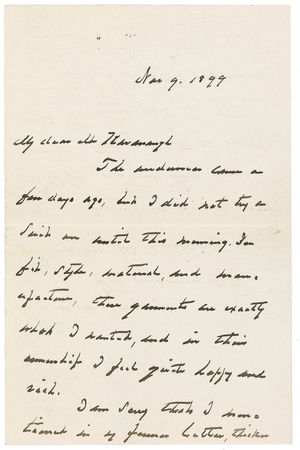 Nov 9. 1899
My dear Mr Kavanaugh
The underwear came a
few days ago, but I did not try a
suit on until this morning. In
fit, style, material, and man-
ufacture, these garments are exactly
what I wanted, and in their
ownership I feel quite happy and
rich.
I am sorry that I men-
tioned in my former letter, thicker